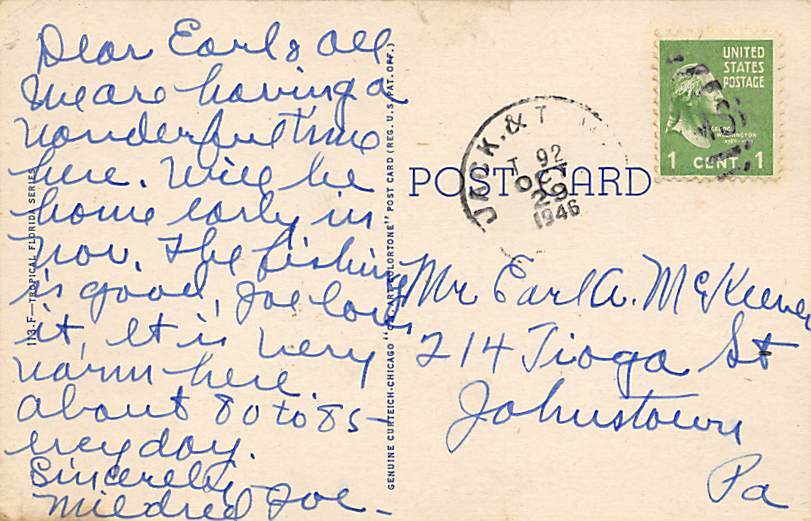 Dear Earl & all
We are having a
wonderful time
here. Will be
home early in
Nov. The fishing
is good, Joe loves
it, It is very
warm here.
about 80 to 85-
every day.
Sincerely
Mildred Joe-
113-F—TROPICAL FLORIDA SERIES
GENUINE CURTEICH-CHICAGO "C.T. ART-COLORTONE" POST CARD (REG. U.S. PAT. OFF.)
POST CARD
JACK. & T
T 92
OCT
29
1946
UNITED
STATES
POSTAGE
GEORGE
WASHINGTON
1 CENT 1
Mr Earl A. McKeever
214 Tioga St
Johnstown
Pa